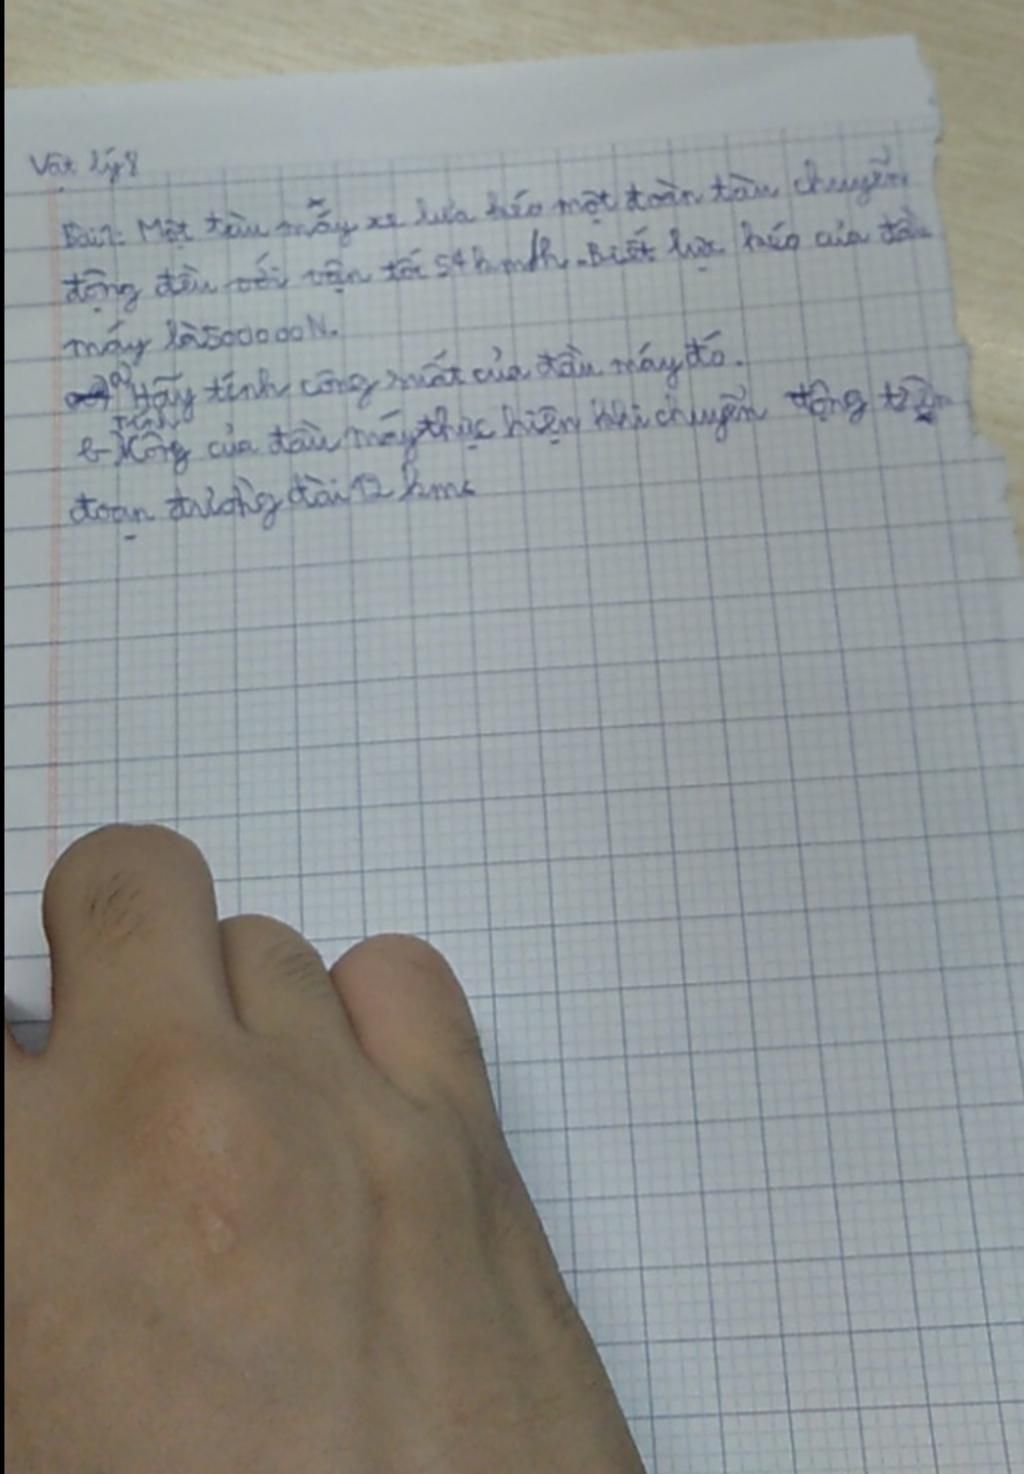 Vật lý 8
Bài 1: Một tàu máy xe lửa kéo một đoàn tàu chuyển
động đều với vận tốc 54 km/h. Biết lực kéo của đầu
máy là 500000N.
a) Hãy tính công suất của đầu máy đó.
b- Tính công của đầu máy thực hiện khi chuyển động trên
đoạn đường dài 12 km.